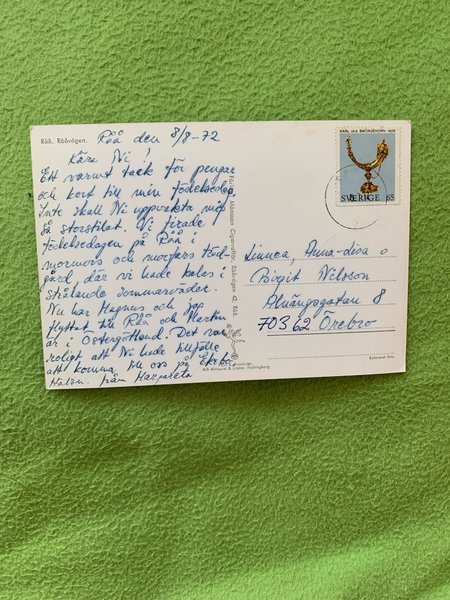 Råå. Råavägen.
Råå den 8/8-72
Kära Ni!
Ett varmt tack för pengar
och kort till min födelsedag
Inte skall Ni uppvakta mig
så storstilat. Vi firade
födelsedagen på Råå i
mormors och morfars träd-
gård där vi hade kalas i
strålande sommarväder.
Nu har Magnus och jag
flyttat till Råå och Martin
är i Östergötland. Det var
roligt att Ni hade tillfälle
att komma till oss på Ekebo
Hälsn. från Margareta
Månsson Cigarraffär, Råavägen 42, Råå.
AB Almquist & Cöster, Hälsingborg
KARL IX:s SMÖRJEHORN 1606
SVERIGE 65
Linnea, Anna-Lisa o
Birgit Nilsson
Älvängsgatan 8
703 62 Örebro
Kolorerat foto